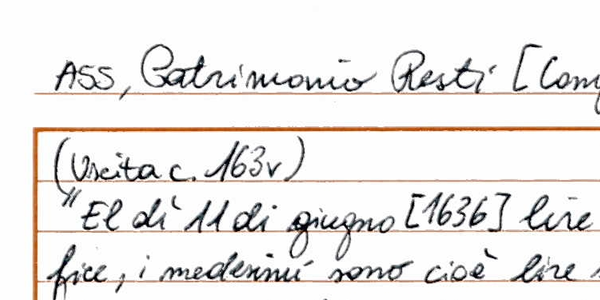 ASS, Patrimonio Resti [Comp
(Uscita c. 163v)
"El dì 11 di giugno [1636] lire
fice, i medesimi sono cioè lire